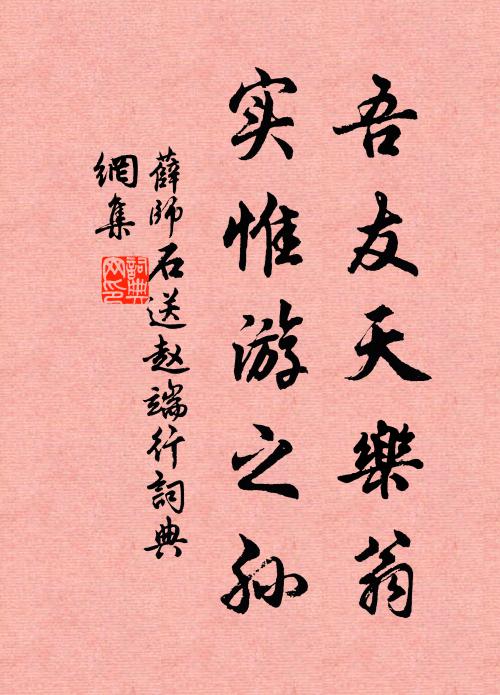 吾友天樂翁
实惟游之孙
薛師石送赵端行詞典
網集
詞典网印